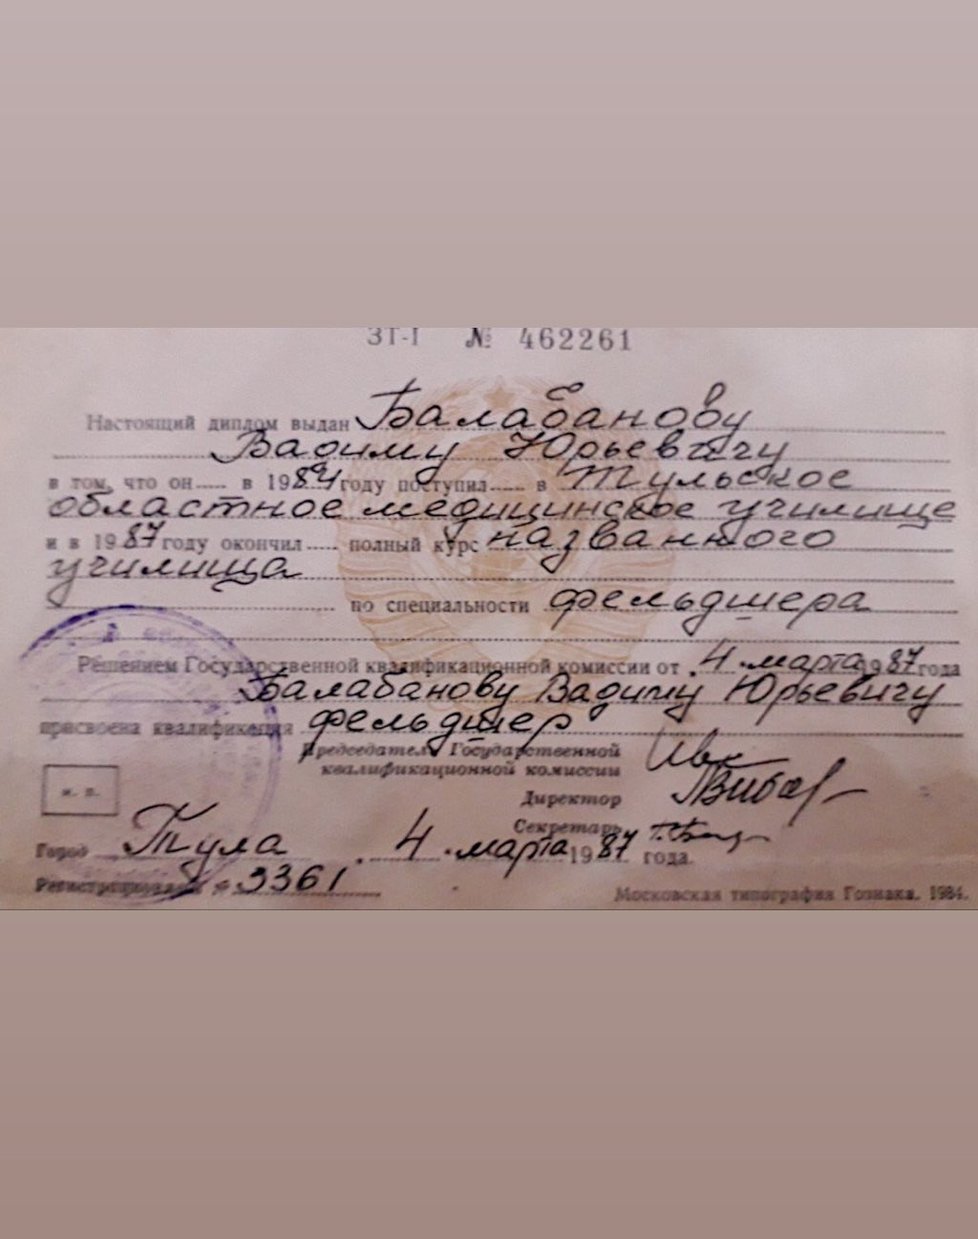 ЗТ-I № 462261
Настоящий диплом выдан Балабанову
Вадиму Юрьевичу
в том, что он в 1984 году поступил в Тульское
областное медицинское училище
и в 1987 году окончил полный курс названного
училища
по специальности фельдшера
Решением Государственной квалификационной комиссии от 4 марта 1987 года
Балабанову Вадиму Юрьевичу
присвоена квалификация фельдшер
Председатель Государственной
квалификационной комиссии
Директор
м. п.
Секретарь
Город Тула 4 марта 1987 года.
Регистрационный № 3361
Московская типография Гознака. 1984.